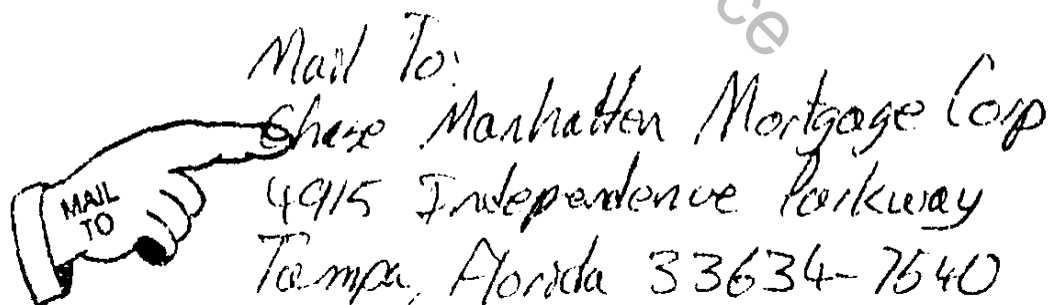 Mail To:
Chase Manhatten Mortgage Corp
4915 Independence Parkway
Tampa, Florida 33634-7540
MAIL
TO